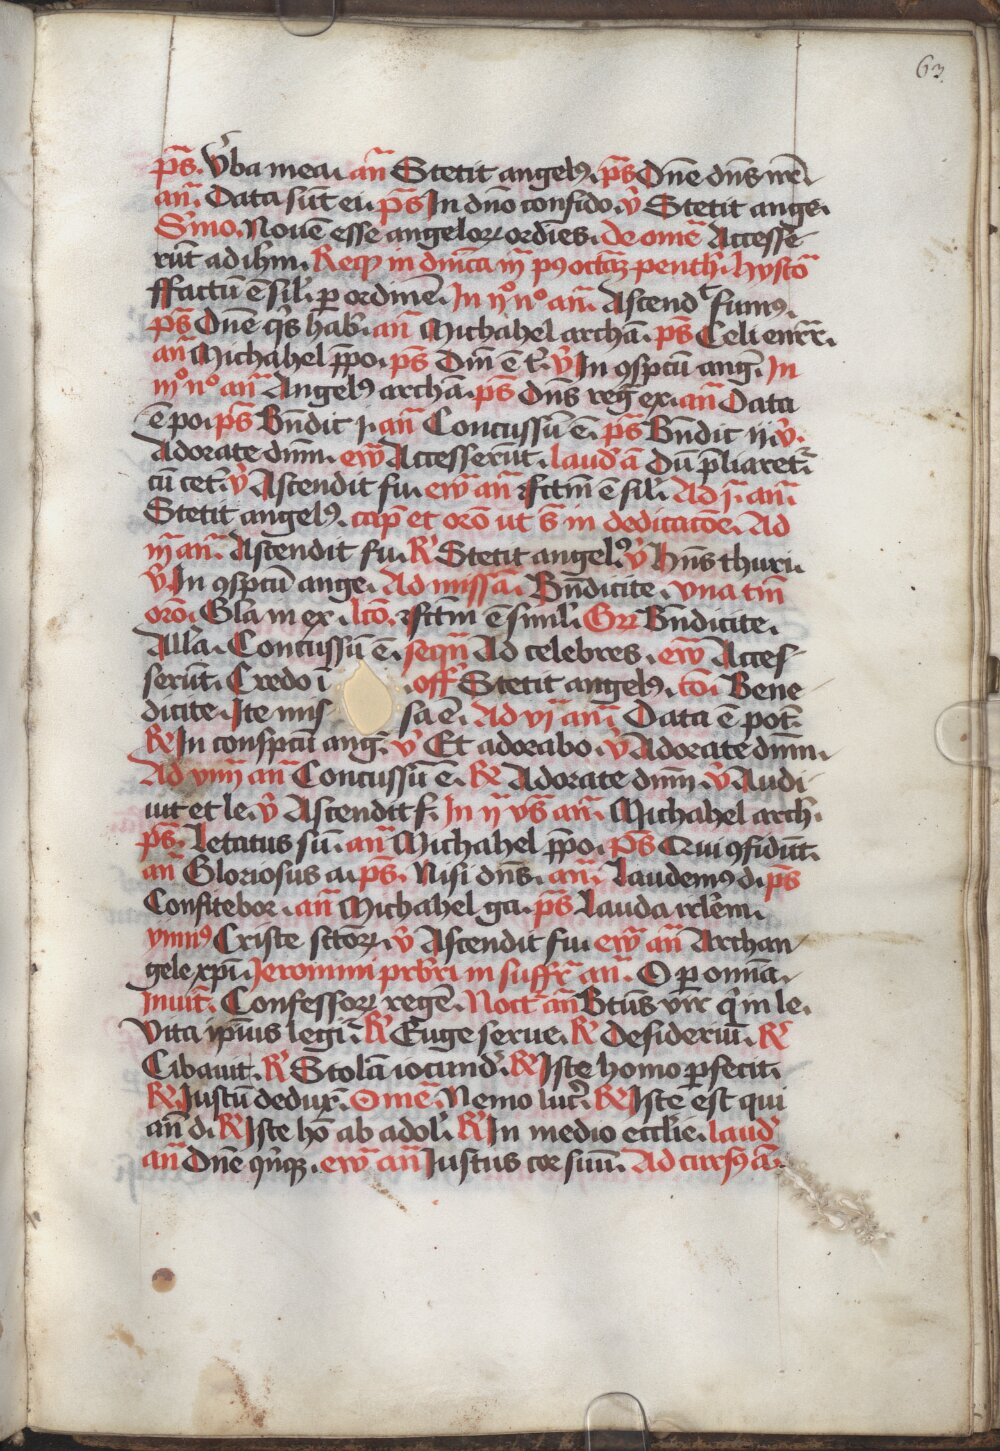 63
p̄s. V̓ba mea. an̄ Stetit angelꝰ. p̄s Dn̄e dn̄s nr̄
an̄. Data sūt ei. p̄s In dn̄o confido. v̓ Stetit ange.
S̓mo. Nouē esse angeloꝝ ordīes. de om̄e Accesse
rūt ad ihm̄. Req̄ in dn̄ica iij pꝰ octaꝫ penth̓. hysto
ffactū ē sil̓. ꝑ ordinē. In ijº nº an̄. Ascend fumꝰ.
p̄s Dn̄e q̓s hab̓. an̄ Michahel archā. p̄s Celi enrr̄.
an̄ Michahel p̄po. p̄s Dm̄ ē t̓. v̓ In ꝯspcū ang̓. In
iijº nº an̄ Angelꝰ archā. p̄s Dn̄s reg̓ ex. an̄ Data
ē po. p̄s Bn̄dit j. an̄ Concussū ē. p̄s Bn̄dit ij. v̓.
Adorate dnm̄. ew̄ Accesserūt. laud̓ ā Dū p̄liaret̓
cū cet̓. v̓ Ascendit fu. ew̄ an̄ ffctm̄ ē sil̓. Ad j. an̄.
Stetit angelꝰ. cap̄ et orō ut s̄ in dedicacōe. Ad
iij an̄. Ascendit fu. R̓ Stetit angelꝰ. v̓ Hn̄s thuri.
v̓. In ꝯspcū ange. Ad missā. Bn̄dicite. vna tm̄
orō. Gl̓a in ex. lcō. ffctm̄ ē simil̓. Gr̄ Bn̄dicite.
All̓a. Concussū ē. seqn̄ Ad celebres. ew̄ Acces-
serūt. Credo ī . off̓ Stetit angelꝰ. cō. Bene
dicite. Ite mis sa ē. Ad vj an̄. Data ē pot̓.
R̓ In conspcū ang̓. v̓ Et adorabo. v̓ Adorate dnm̄.
Ad viiij an̄ Concussū ē. R̓ Adorate dnm̄. v̓ Audi
uit et le. v̓ Ascendit f. In ij vs̄ an̄. Michahel arch̓.
p̄s. Letatus sū. an̄ Michahel p̄po. p̄s Qui ꝯfidūt.
an̄ Gloriosus a. p̄s. Nisi dn̄s. an̄. Laudemꝰ d. p̄s
Confitebor. an̄ Michahel ga. p̄s Lauda irlem̄.
ymnꝰ Criste sctoꝝ. v̓ Ascendit fu. ew̄ an̄ Archan
gele xpī. Jeronimi prb̓ri in suffr̓ an̄. O ꝑ omīa.
Inuit̓. Confessoꝝ regē. Noct̓ an̄ Bt̄us vir q̓ in le.
Vita ip̄ius legi. R̓ Euge serue. R̓ Desideriū. R̓
Cibauit. R̓ Stolā iocund̓. R̓ Iste homo ꝑfecit.
R̓. Iustū dedux̓. Omē. Nemo luc̓. R̓ Iste est qui
an̄ d. R̓ Iste hō ab adol̓. R̓ In medio eccl̓ie. laud̓
an̄ Dn̄e q̓nqꝫ. ew̄ an̄ Iustus cor suū. Ad cursꝰ ā.